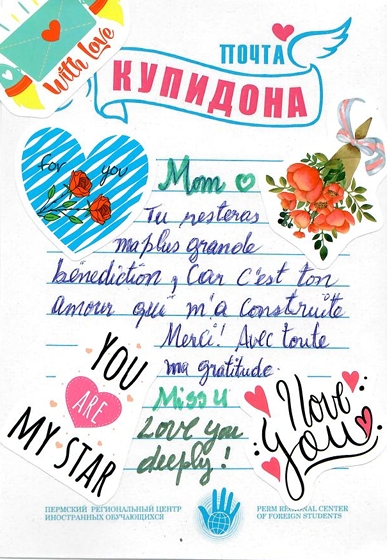 with love
ПОЧТА
КУПИДОНА
for you
Mom
Tu resteras
ma plus grande
bénediction, Car c'est ton
amour qui m'a construitte
Merci! Avec toute
ma gratitude.
Miss U
Love you
deeply!
YOU
ARE
MY STAR
I love
you
ПЕРМСКИЙ РЕГИОНАЛЬНЫЙ ЦЕНТР
ИНОСТРАННЫХ ОБУЧАЮЩИХСЯ
PERM REGIONAL CENTER
OF FOREIGN STUDENTS